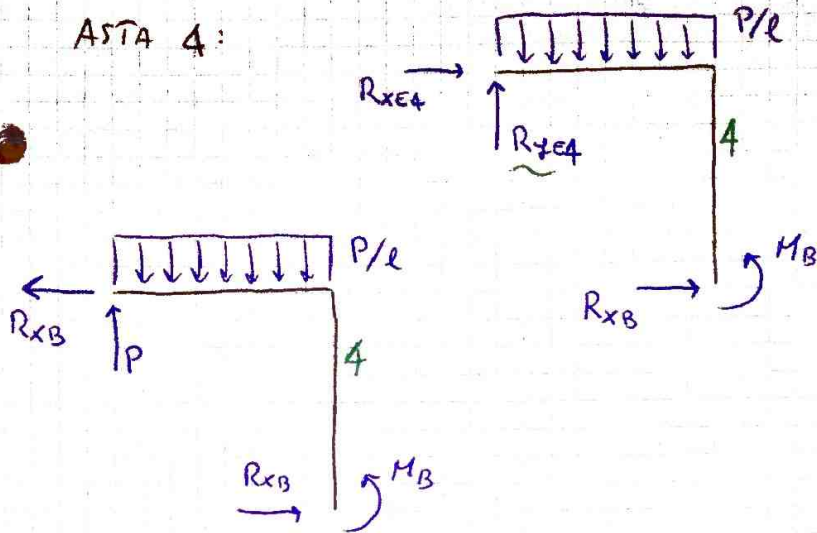 ASTA 4:
P/ℓ
RXE4
RYE4
4
MB
RXB
P/ℓ
RXB
P
4
RXB
MB